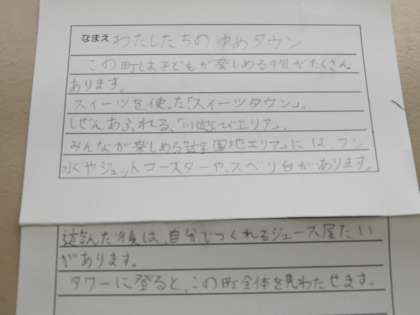 なまえ わたしたちの ゆめタウン
この町は子どもが楽しめる物がたくさん
あります。
スイーツを使った「スイーツタウン」。
しぜんあふれる、「川遊びエリア」。
みんなが楽しめる「遊園地エリア」には、プー
水やジェットコースターや、スベリ台があります。
遊んだ後は、自分でつくれるジュース屋たい
があります。
タワーに登ると、この町全体を見わたせます。